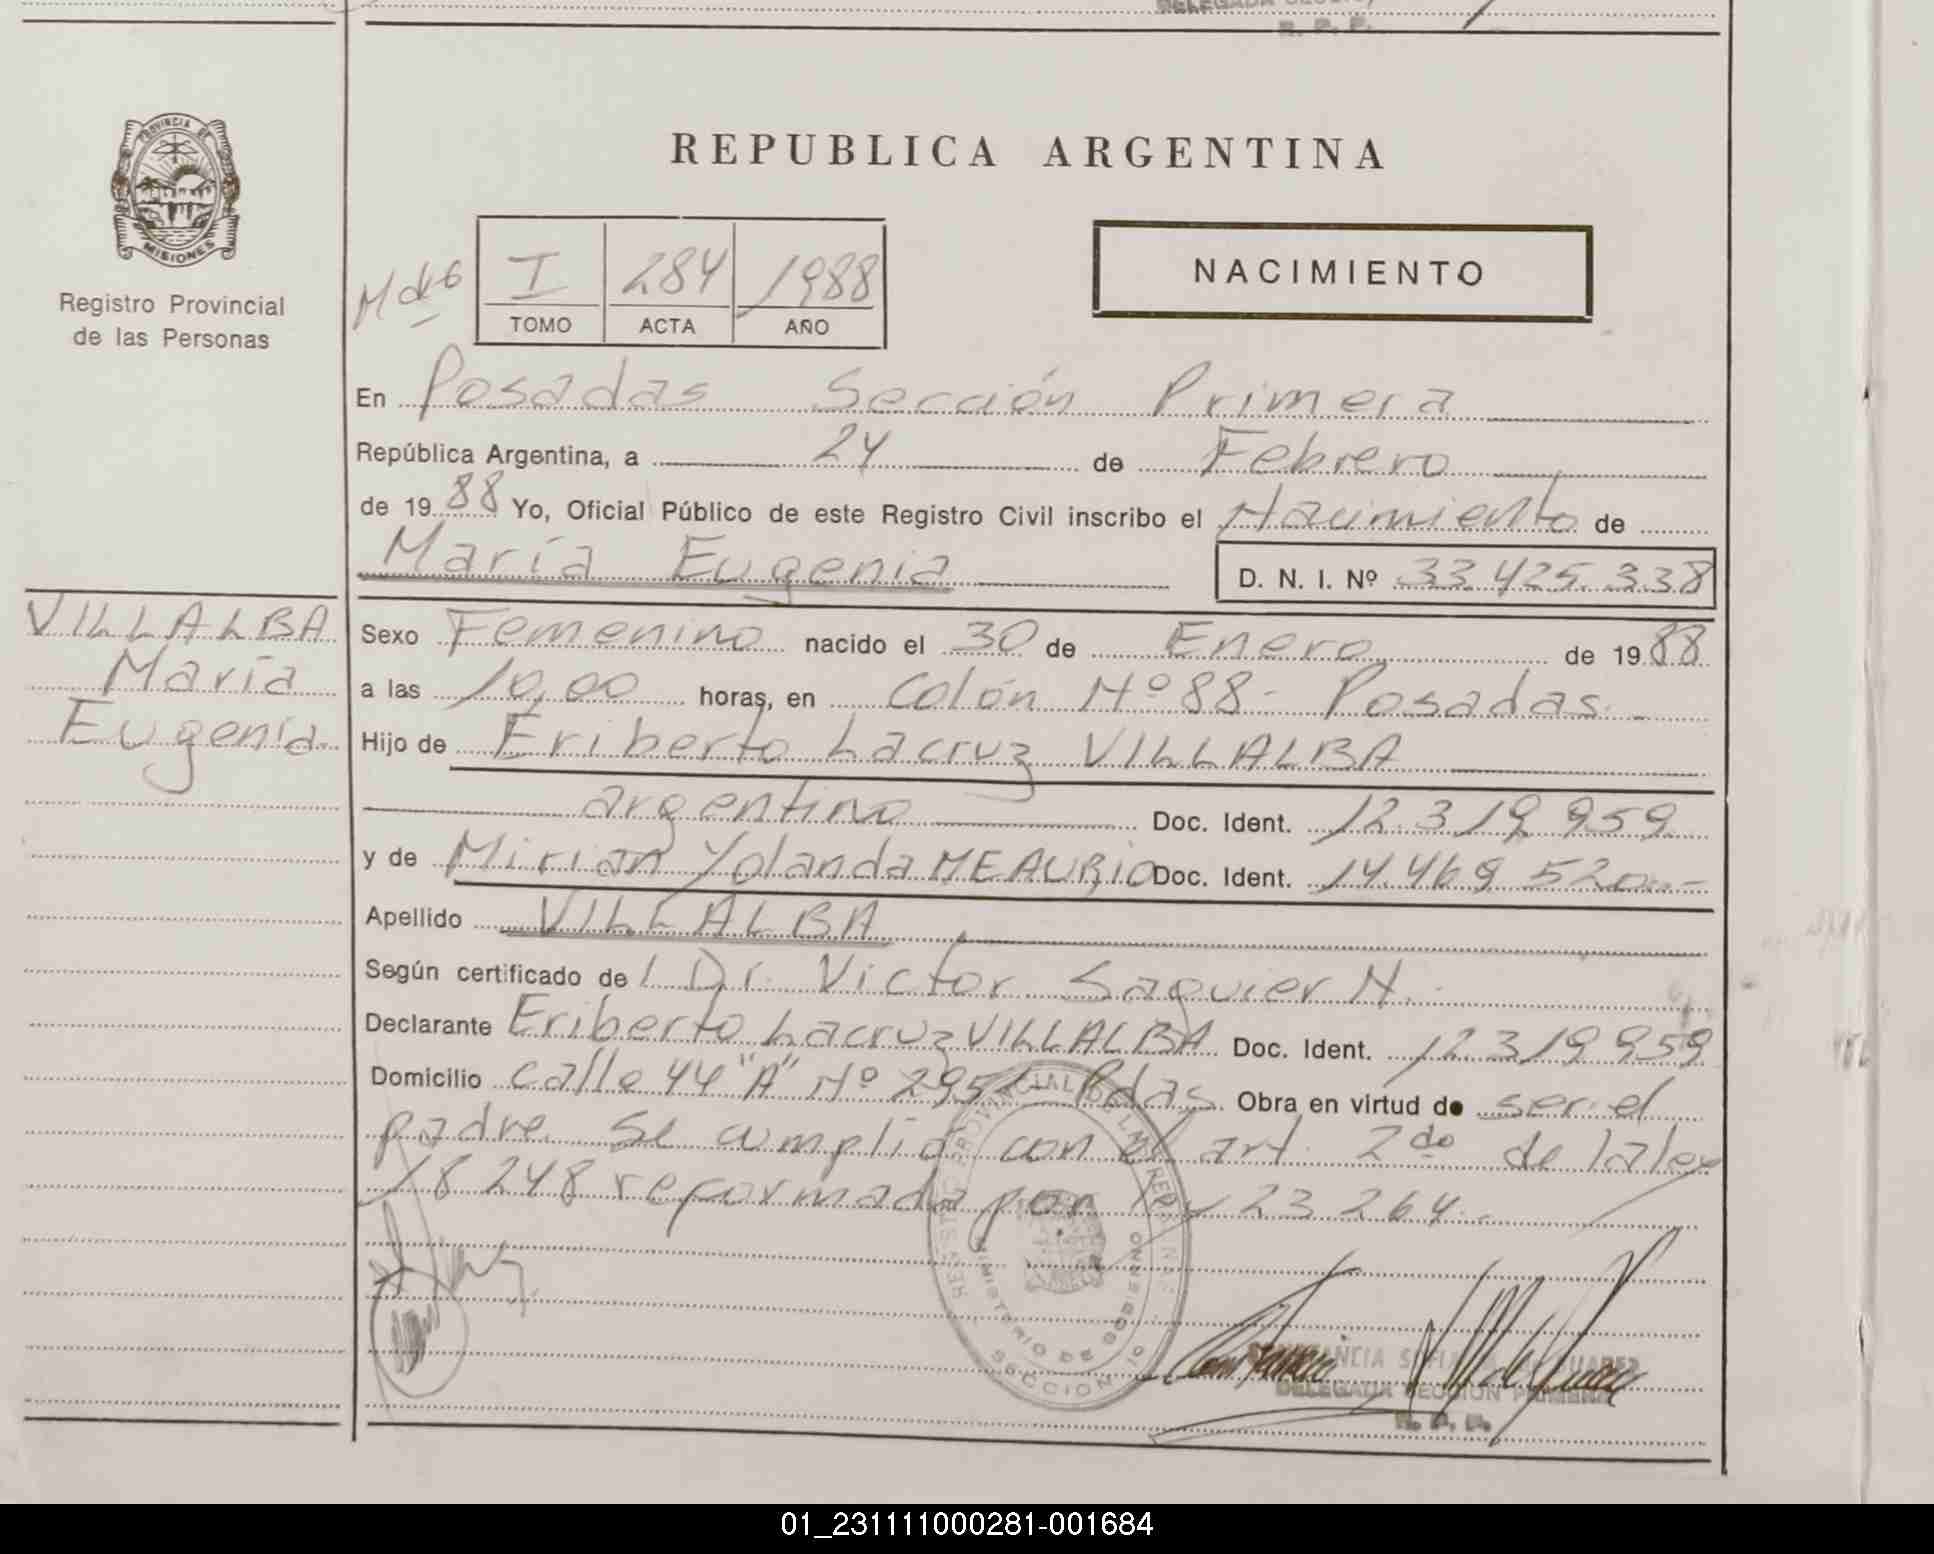 R. P. P.
PROVINCIA DE
MISIONES
Registro Provincial
de las Personas
REPUBLICA ARGENTINA
I 284 1988
TOMO ACTA AÑO
NACIMIENTO
En Posadas Sección Primera
República Argentina, a 24 de Febrero
de 1988 Yo, Oficial Público de este Registro Civil inscribo el Nacimiento de
María Eugenia D. N. I. Nº 33.425.338
VILLALBA
María
Eugenia
Sexo Femenino nacido el 30 de Enero de 1988
a las 10,00 horas, en Colón Nº 88- Posadas.-
Hijo de Eriberto Lacruz VILLALBA
argentino Doc. Ident. 12.319.959
y de Mirian Yolanda MEAURIO Doc. Ident. 14.469.520.-
Apellido VILLALBA
Según certificado de l Dr. Victor Saguier N.
Declarante Eriberto Lacruz VILLALBA Doc. Ident. 12.319.959
Domicilio calle 44 "A" Nº 295 Pdas. Obra en virtud de ser el
padre. Se cumplió con el art. 2do de la ley
18 248 reformada por ley 23 264.-
MINISTERIO DE GOBIERNO
SECCION
DELEGADA SECCION PRIMERA
R. P. P.
01_231111000281-001684